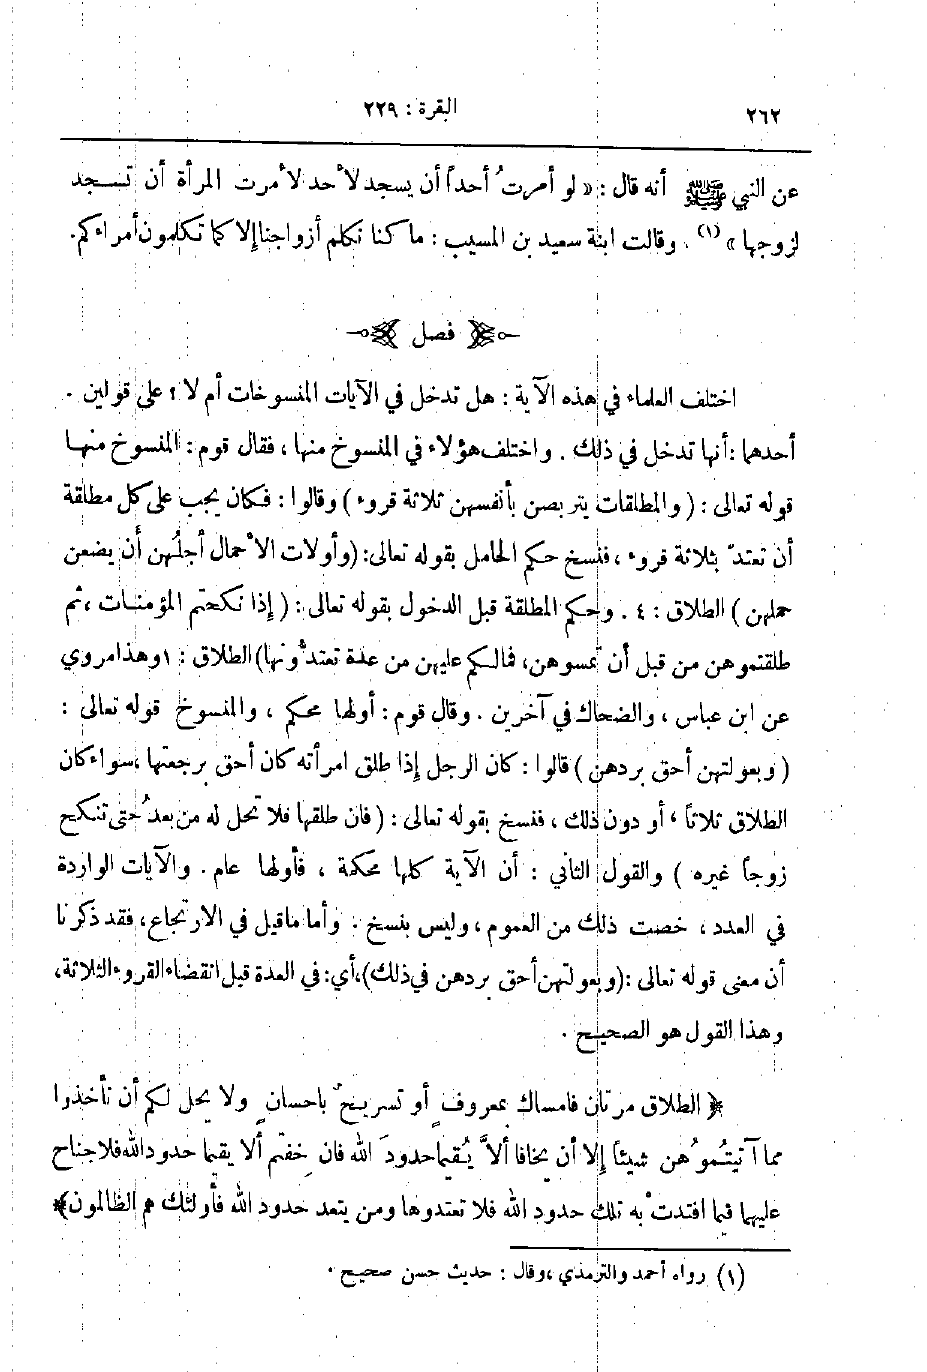 ٢٦٢
البقرة : ٢٢٩
عن النبي ﷺ أنه قال : « لو أمرتُ أحداً أن يسجد لأحد لأمرت المرأة أن تسجد
لزوجها » (١) . وقالت ابنة سعيد بن المسيب : ما كنا نكلم أزواجنا إلا كما تكلمون أمراءكم.
فصل
اختلف العلماء في هذه الآية : هل تدخل في الآيات المنسوخات أم لا ؟ على قولين .
أحدهما : أنها تدخل في ذلك . واختلف هؤلاء في المنسوخ منها ، فقال قوم : المنسوخ منها
قوله تعالى : ( والمطلقات يتربصن بأنفسهن ثلاثة قروء ) وقالوا : فكان يجب على كل مطلقة
أن تعتدّ بثلاثة قروء ، فنسخ حكم الحامل بقوله تعالى: (وأولات الأحمال أجلُهن أن يضعن
حملهن ) الطلاق : ٤ . وحكم المطلقة قبل الدخول بقوله تعالى : ( إذا نكحتم المؤمنات ، ثم
طلقتموهن من قبل أن تمسوهن، فمالكم عليهن من عدة تعتدُّونها) الطلاق : ١ وهذا مروي
عن ابن عباس ، والضحاك في آخرين . وقال قوم : أولها محكم ، والمنسوخ قوله تعالى :
( وبعولتهن أحق بردهن ) قالوا : كان الرجل إذا طلق امرأته كان أحق برجعتها ، سواء كان
الطلاق ثلاثاً ، أو دون ذلك ، فنسخ بقوله تعالى : ( فان طلقها فلا تحل له من بعدُ حتى تنكح
زوجاً غيره ) والقول الثاني : أن الآية كلها محكمة ، فأولها عام . والآيات الواردة
في العدد ، خصت ذلك من العموم ، وليس بنسخ . وأما ما قيل في الارتجاع، فقد ذكرنا
أن معنى قوله تعالى : (وبعولتهن أحق بردهن في ذلك)، أي: في العدة قبل انقضاء القروء الثلاثة،
وهذا القول هو الصحيح .
﴿ الطلاق مرتان فامساك بمعروفٍ أو تسريحٌ باحسانٍ ولا يحل لكم أن تأخذوا
مما آتيتُموُهن شيئاً إلا أن يخافا ألاَّ يُقيما حدودَ الله فان خِفتم ألا يقيما حدود الله فلا جناح
عليهما فيما افتدتْ به تلك حدود الله فلا تعتدوها ومن يتعد حدود الله فأولئك هم الظالمون ﴾
(١) رواه أحمد والترمذي ، وقال : حديث حسن صحيح .